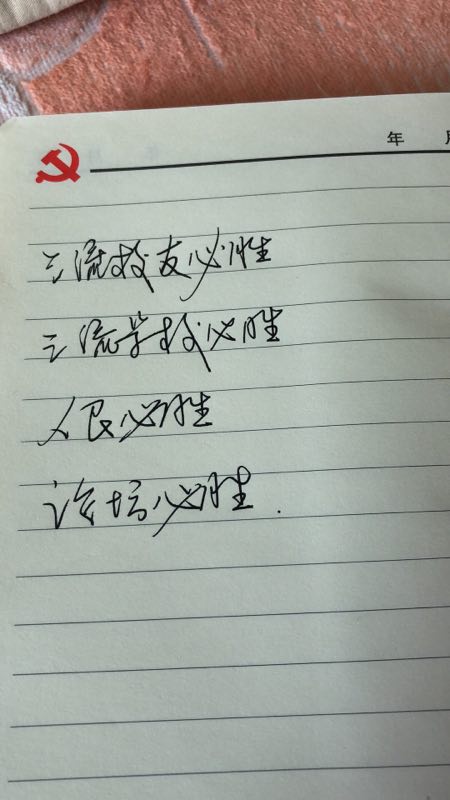 年 月
三流校友必胜
三流学校必胜
人民必胜
论坛必胜.